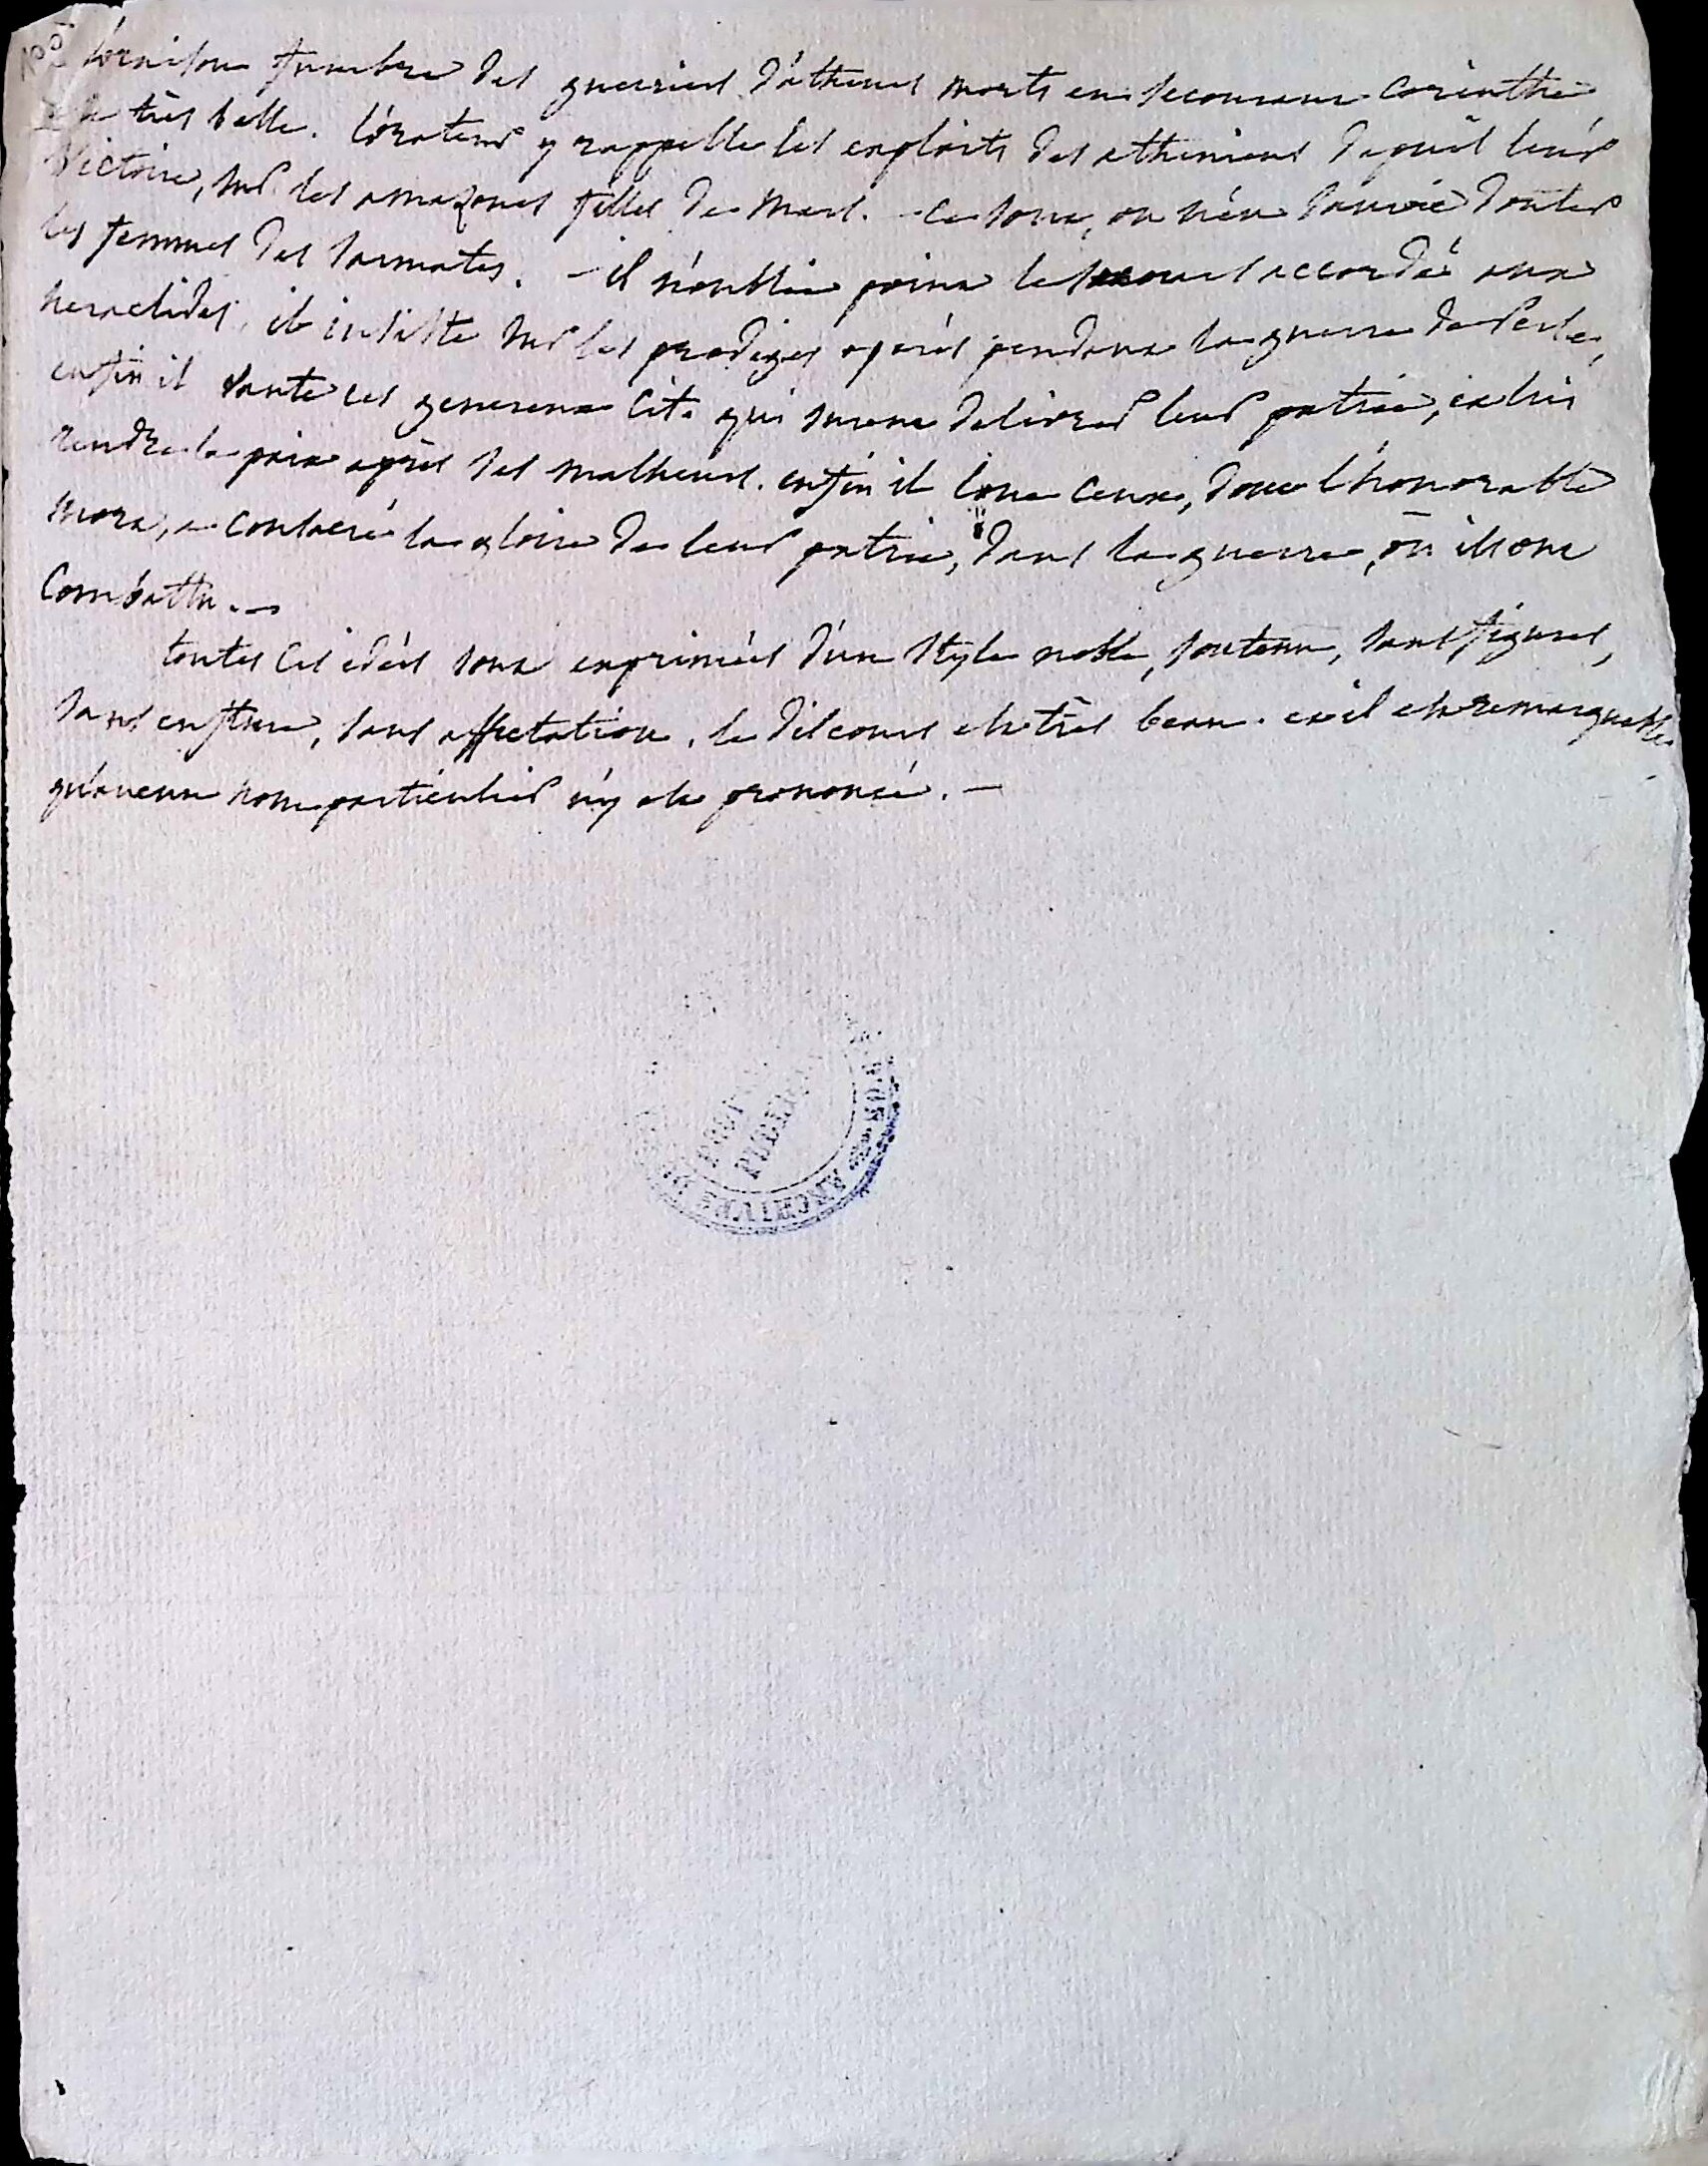 l'oraison funebre des guerriers d'athenes morts en secourant Corinthe
est très belle. l'orateur y rappelle les exploits des atheniens depuis leur
Victoire, sur les amazones filles de Mars. - ce sont, on n'en douter
les femmes des sarmates. - il n'oublie point le secours accordé aux
heraclides, il insiste sur les prodiges operés pendant la guerre de Perse,
enfin il vante ces genereux Cit. qui surent delivrer leur patrie, et lui
rendre la paix après des malheurs. enfin il loue ceux, dont l'honorable
mort, a consacré la gloire de leur patrie, dans la guerre, où ils ont
Combattu. -
toutes ces idées sont exprimées d'un style noble, soutenu, sans figures,
sans enflure, sans affectation. le discours est très beau. et il est remarquable
qu'aucun nom particulier n'y est prononcé. -
ARCHIVES